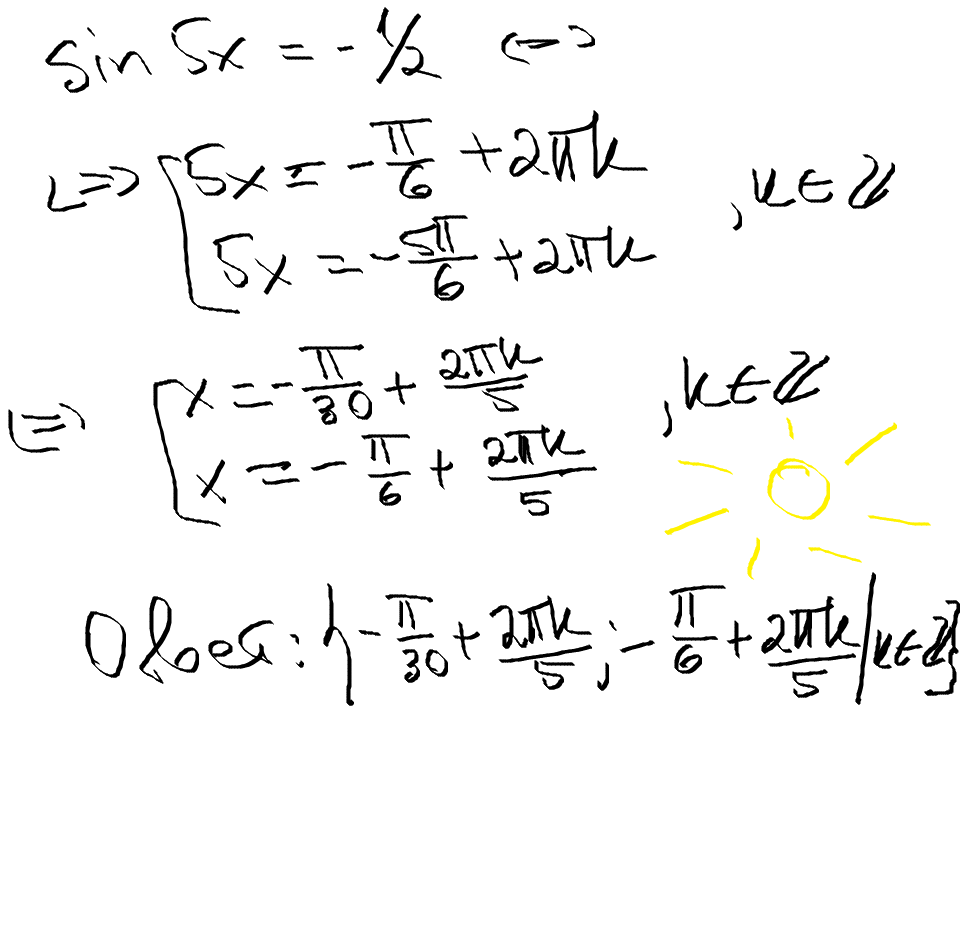 sin 5x = -1/2 <=>
<=> [ 5x = -π/6 + 2πk
5x = -5π/6 + 2πk , k ∈ ℤ
<=> [ x = -π/30 + 2πk/5
x = -π/6 + 2πk/5 , k ∈ ℤ
Ответ: { -π/30 + 2πk/5 ; -π/6 + 2πk/5 | k ∈ ℤ }